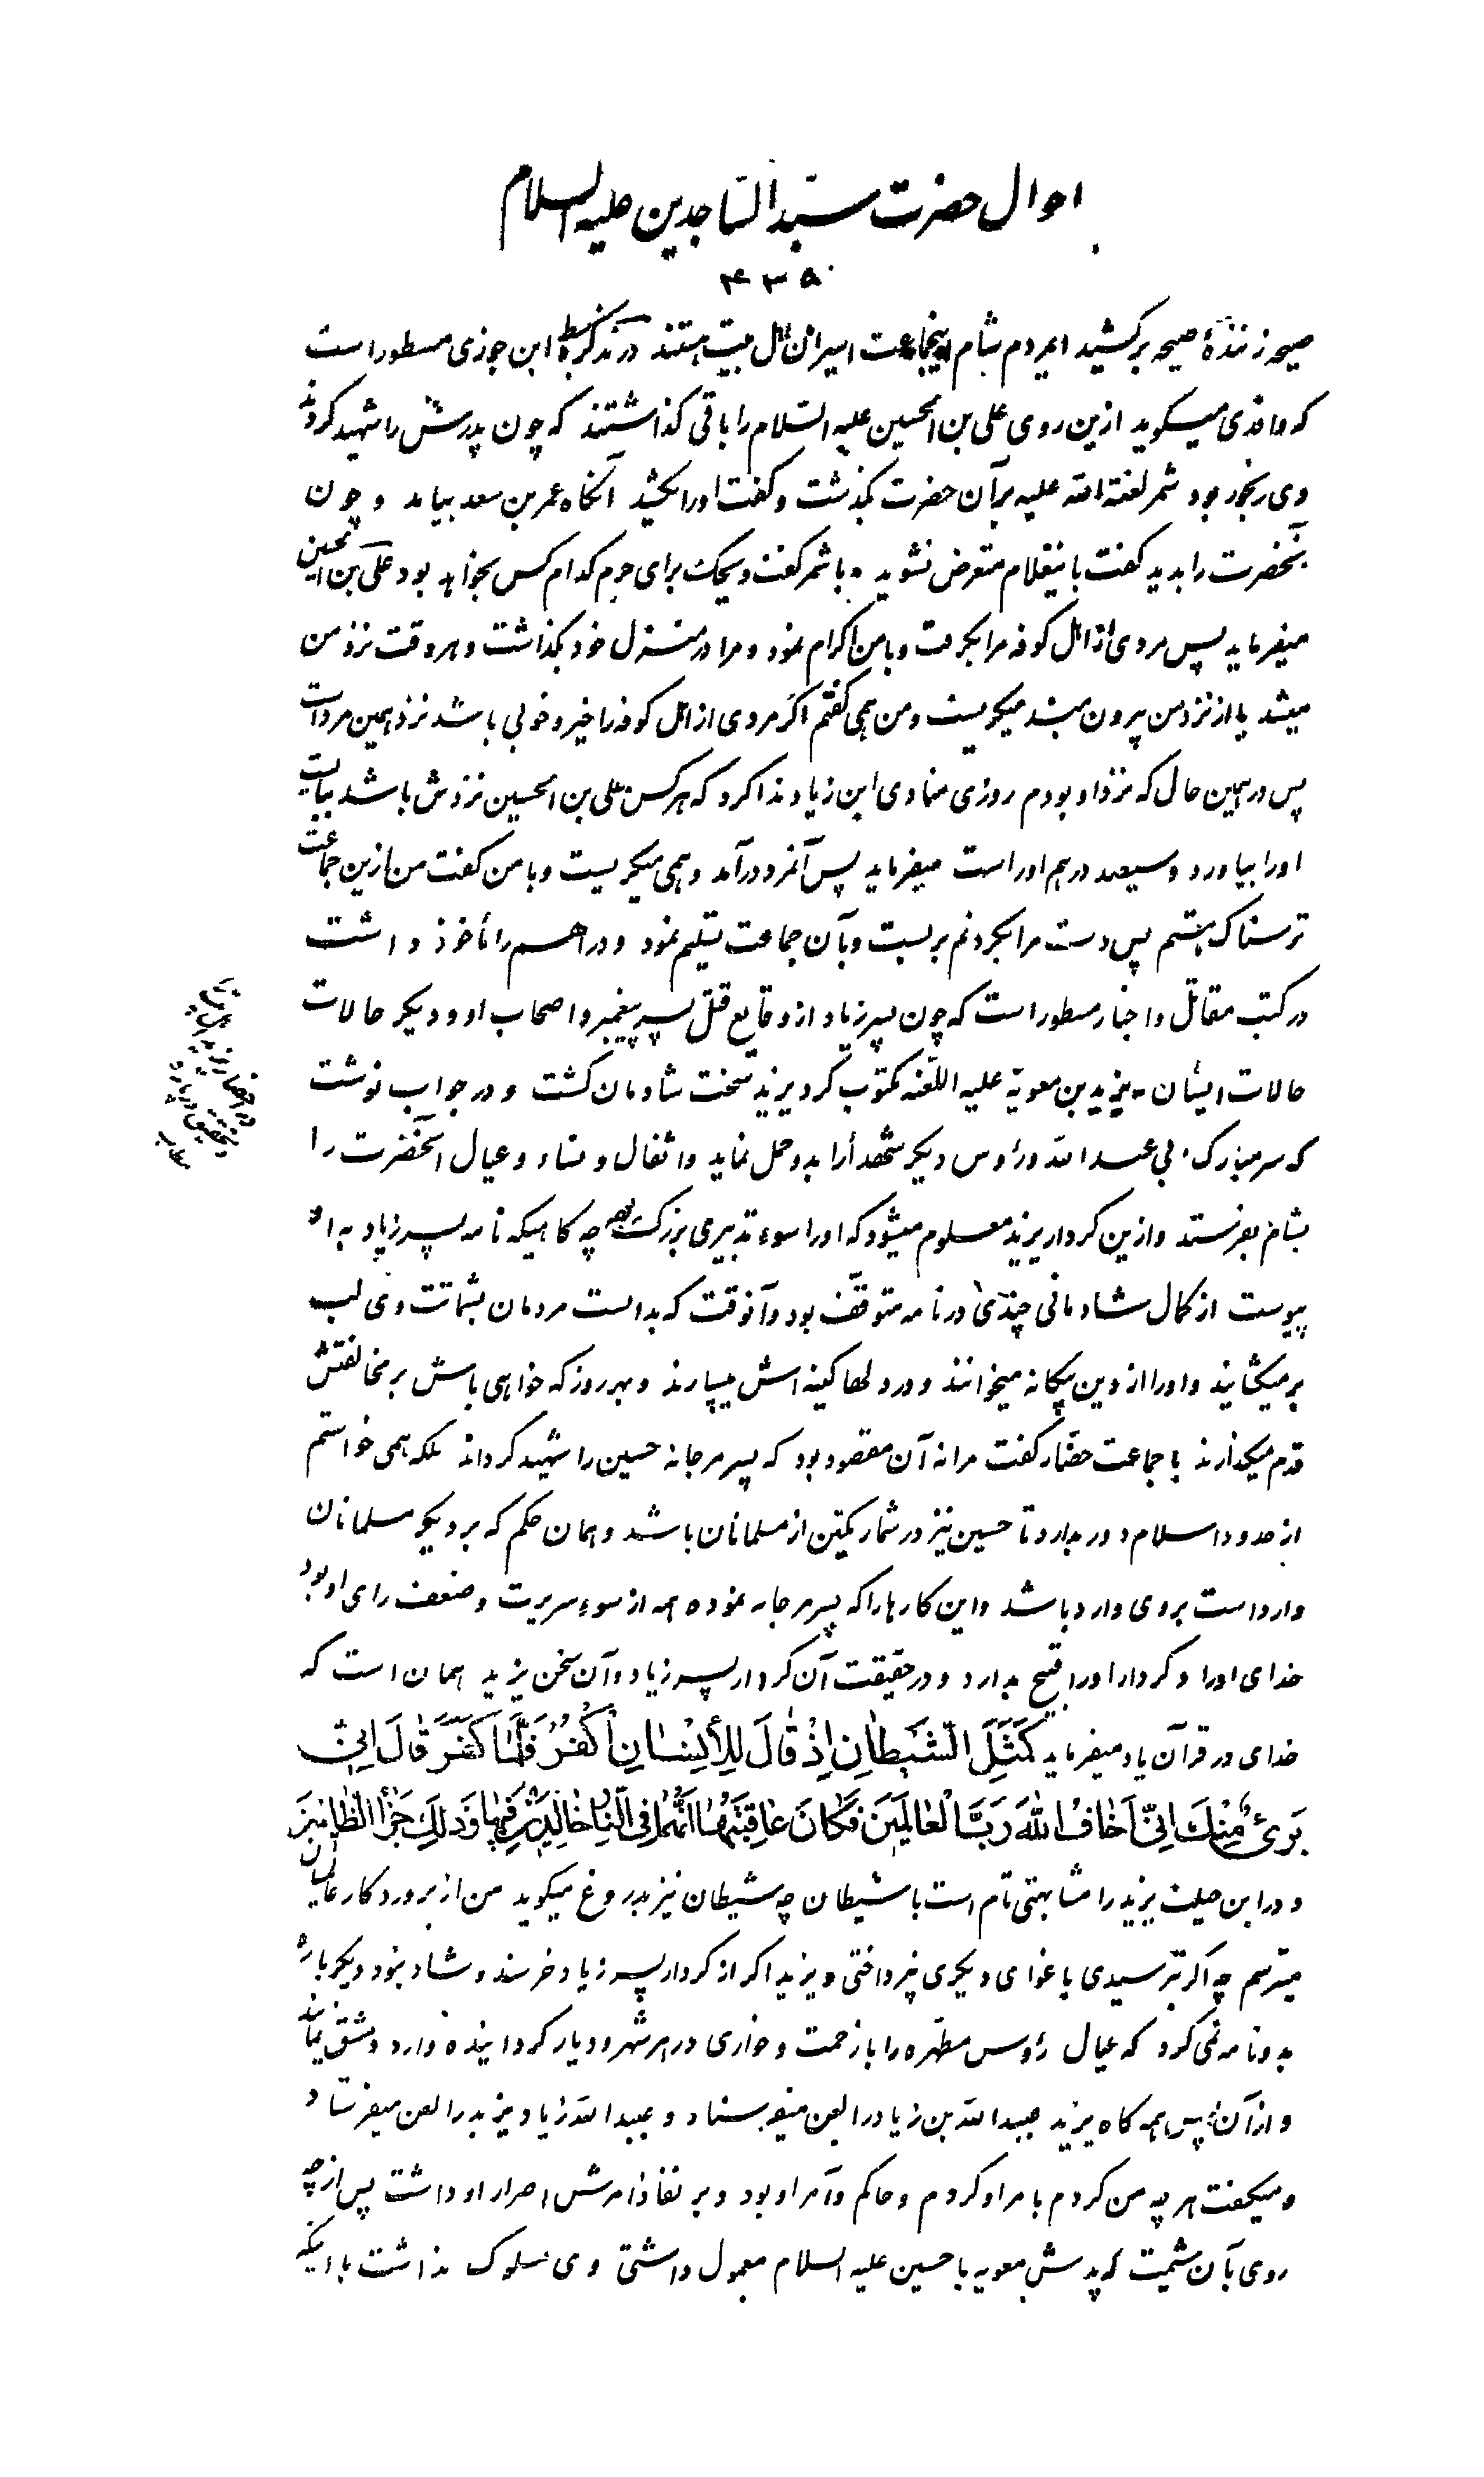 احوال حضرت سیّد السّاجدین علیه السلام
۴۳۵
صیحه زنندهٔ صیحه برکشید ایمردم شام اینجماعت اسیران آل بیت هستند در تذکرهٔ سبط ابن جوزی مسطور است
که واقدی میگوید ازین روی علی بن الحسین علیه السّلام را باقی گذاشتند که چون پدرش را شهید کردند
وی رنجور بود شمر لعنة الله علیه بر آن حضرت بگذشت و گفت او را بکشید آنگاه عمر بن سعد بیامد و چون
آنحضرت را بدید گفت باینغلام متعرض نشوید و با شمر گفت ویحک برای حرم کدام کس بخواهد بود علی بن الحسین
میفرماید پس مردی از اهل کوفه مرا بگرفت و با من اکرام نمود و مرا در منزل خود بگذاشت و هر وقت نزد من
میشد یا از نزد من بیرون میشد میگریست و من همی گفتم اگر مردی از اهل کوفه را خیر و خوبی باشد نزد همین مرد است
پس در همین حال که نزد او بودم روزی منادی ابن زیاد ندا کرد که هر کس علی بن الحسین نزدش باشد ببایست
او را بیاورد و سیصد درهم او راست میفرماید پس آنمرد درآمد و همی میگریست و با من گفت من ازین جماعت
ترسناک هستم پس دست مرا بگردنم بربست و بآن جماعت تسلیم نمود و دراهم را مأخوذ داشت
در کتب مقاتل و اخبار مسطور است که چون پسر زیاد از وقایع قتل پسر پیغمبر و اصحاب او و دیگر حالات
حالات ایشان بیزید بن معویة علیه اللعنه مکتوب کرد یزید سخت شادمان گشت و در جواب نوشت
که سر مبارک ابی عبد الله و رؤس دیگر شهدا را بدو حمل نماید و اثقال و نساء و عیال آنحضرت را
بشام بفرستد و ازین کردار یزید معلوم میشود که او را سوء تدبیری بزرگ بود چه گاهیکه نامه پسر زیاد به او
پیوست از کمال شادمانی چندی در نامه متوقّف بود و آنوقت که بدانست مردمان بشماتت وی لب
برمیگشایند و او را از دین بیگانه میخوانند و در دلها کینه اش میسپارند و بهر روز که خواهی باشد بر مخالفتش
قدم میگذارند با جماعت حضّار گفت مرا نه آن مقصود بود که پسر مرجانه حسین را شهید گرداند بلکه همی خواستم
از حدود اسلام دور بدارد تا حسین نیز در شمار یکتن از مسلمانان باشد و همان حکم که بر دیگر مسلمانان
وارد است بر وی وارد باشد و این کارها را که پسر مرجانه نموده همه از سوء سریرت و ضعف رای او بود
خدای او را و کردار او را قبیح بدارد و در حقیقت آن کردار پسر زیاد و آن سخن یزید همان است که
خدای در قرآن یاد میفرماید كَمَثَلِ الشَّيْطَانِ إِذْ قَالَ لِلْإِنْسَانِ اكْفُرْ فَلَمَّا كَفَرَ قَالَ إِنِّي
بَرِيءٌ مِنْكَ إِنِّي أَخَافُ اللهَ رَبَّ الْعَالَمِينَ فَكَانَ عَاقِبَتَهُمَا أَنَّهُمَا فِي النَّارِ خَالِدَيْنِ فِيهَا وَذَلِكَ جَزَاءُ الظَّالِمِينَ
و در این حیلت یزید را مشابهتی تام است با شیطان چه شیطان نیز بدروغ میگوید من از پروردگار عالمیان
میترسم چه اگر بترسیدی باغوای دیگری نپرداختی و یزید اگر از کردار پسر زیاد خرسند و شاد نبود دیگر باره
بدو نامه نمی کرد که عیال رؤس مطهّره را با زحمت و خواری در هر شهر و دیار گردانیده وارد دمشق نماید
و از آن پس همه گاه یزید عبید الله بن زیاد را لعن میفرستاد و عبید الله زیاد یزید را لعن میفرستاد
و میگفت هر چه من کردم بامر او کردم و حاکم و آمر او بود و بر نفاذ امرش اصرار او داشت پس از چه
روی بآن شیمت که پدرش معویه با حسین علیه السلام معمول داشتی وی سلوک نداشت با اینکه